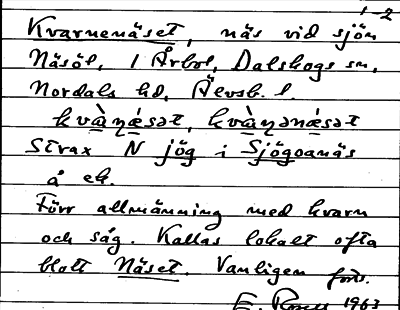 1-2
Kvarnenäset, näs vid sjön
Näsöl, 1 Årbol, Dalskogs sn,
Nordals hd, Älvsb. l.
Strax N jög i Sjögoanäs
å ek.
Förr allmänning med kvarn
och såg. Kallas lokalt ofta
blott Näset. Vanligen
E. 1963